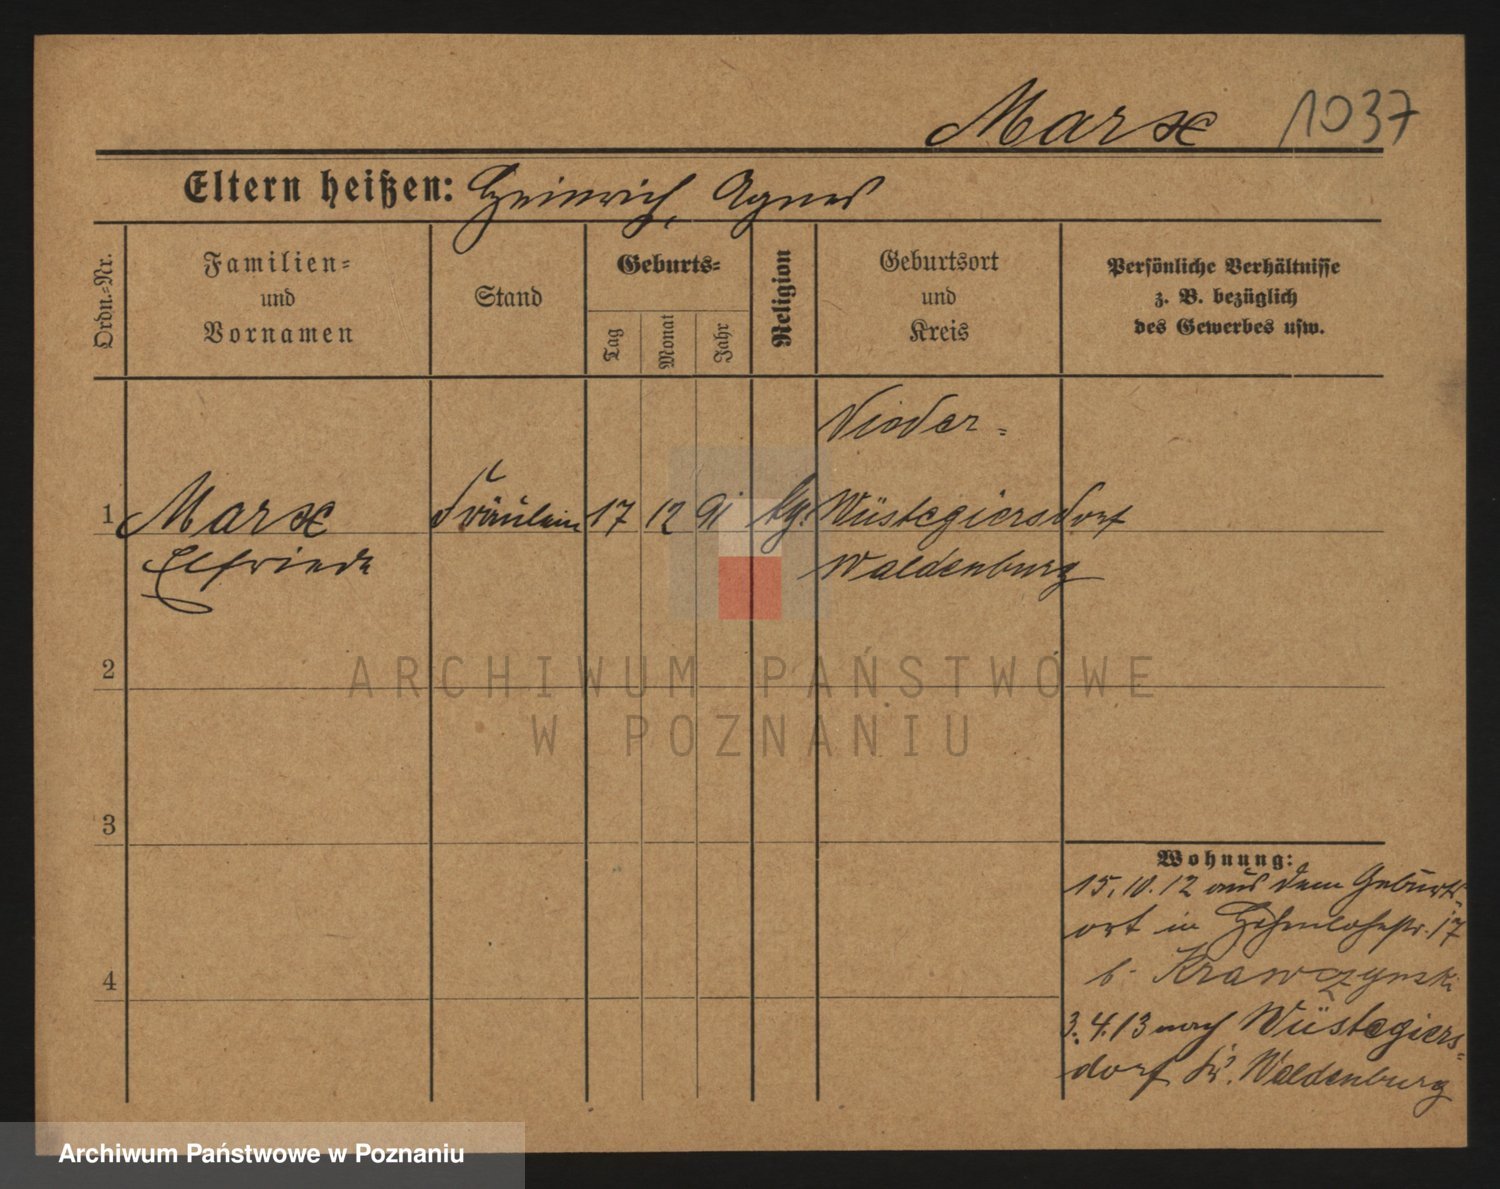 Marx 1037
Eltern heißen: Heinrich, Agnes
Ordn.-Nr.
Familien-
und
Vornamen
Stand
Geburts-
Tag
Monat
Jahr
Religion
Geburtsort
und
Kreis
Persönliche Verhältnisse
z. B. bezüglich
des Gewerbes usw.
Nieder-
1 Marx Fräulein 17 12 91 Wüstegiersdorf
Elfriede Waldenburg
2
ARCHIWUM PAŃSTWOWE
W POZNANIU
3
Wohnung:
15.10.12 aus dem Geburts-
ort in Hohenlohestr. 17
b. Krawczynski
4
3.4.13 nach Wüstegiers-
dorf Kr. Waldenburg
Archiwum Państwowe w Poznaniu